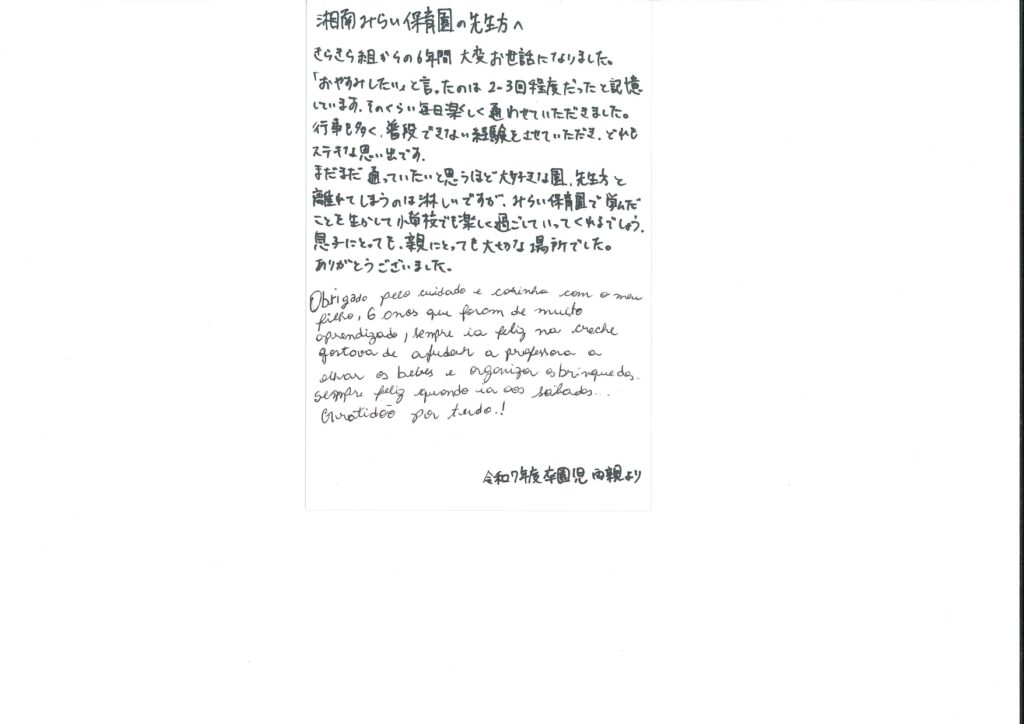 湘南みらい保育園の先生方へ
きらきら組からの6年間 大変お世話になりました。
「おやすみしたい」と言ったのは 2-3回程度だったと記憶
しています。そのくらい毎日楽しく通わせていただきました。
行事も多く、普段できない経験をさせていただき、どれも
ステキな思い出です。
まだまだ 通っていたいと思うほど大好きな園、先生方と
離れてしまうのは淋しいですが、みらい保育園で学んだ
ことを生かして小学校でも楽しく過ごしていってくれるでしょう。
息子にとっても、親にとっても大切な場所でした。
ありがとうございました。
Obrigado pelo cuidado e carinho com o meu
filho, 6 anos que foram de muito
aprendizado, sempre ia feliz na creche
gostava de ajudar a professora a
olhar os bebês e organizar os brinquedos.
sempre feliz quando ia aos sábados...
Gratidão por tudo.!
令和7年度卒園児 両親より